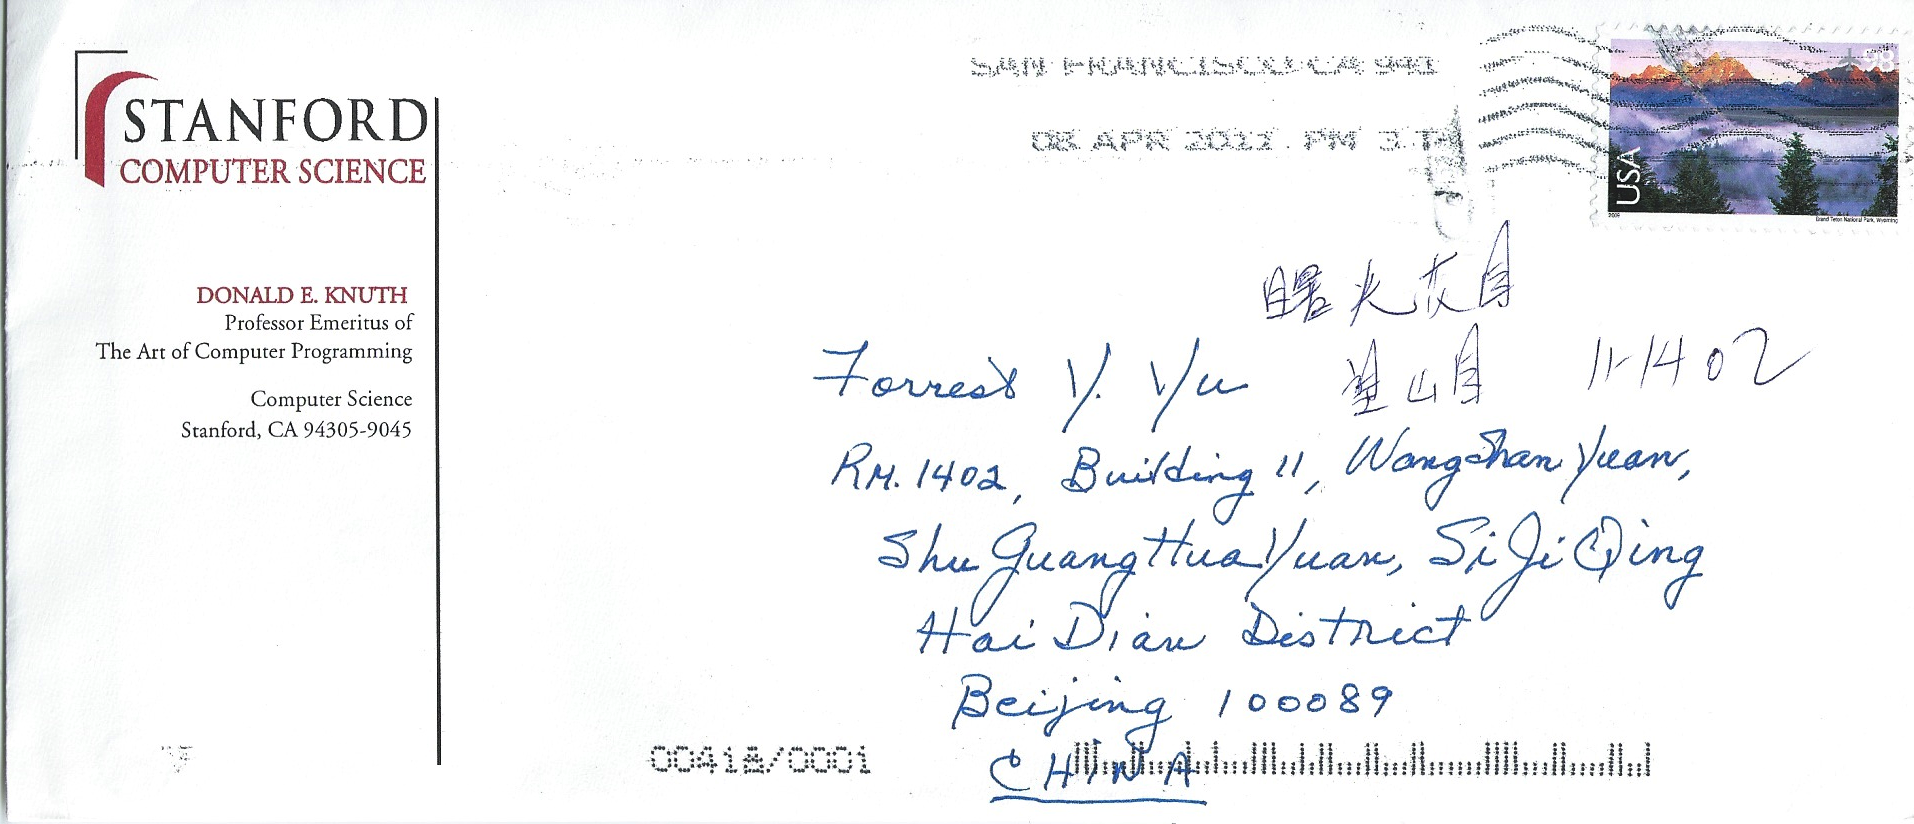 STANFORD
COMPUTER SCIENCE
DONALD E. KNUTH
Professor Emeritus of
The Art of Computer Programming
Computer Science
Stanford, CA 94305-9045
SAN FRANCISCO CA 941
08 APR 2011 PM 3 T
98
USA
2009
Grand Teton National Park, Wyoming
曙光花园
望山园 11-1402
Forrest Y. Yu
RM. 1402, Building 11, WangShanYuan,
ShuGuangHuaYuan, SiJiQing
HaiDian District
Beijing 100089
CHINA
00418/0001